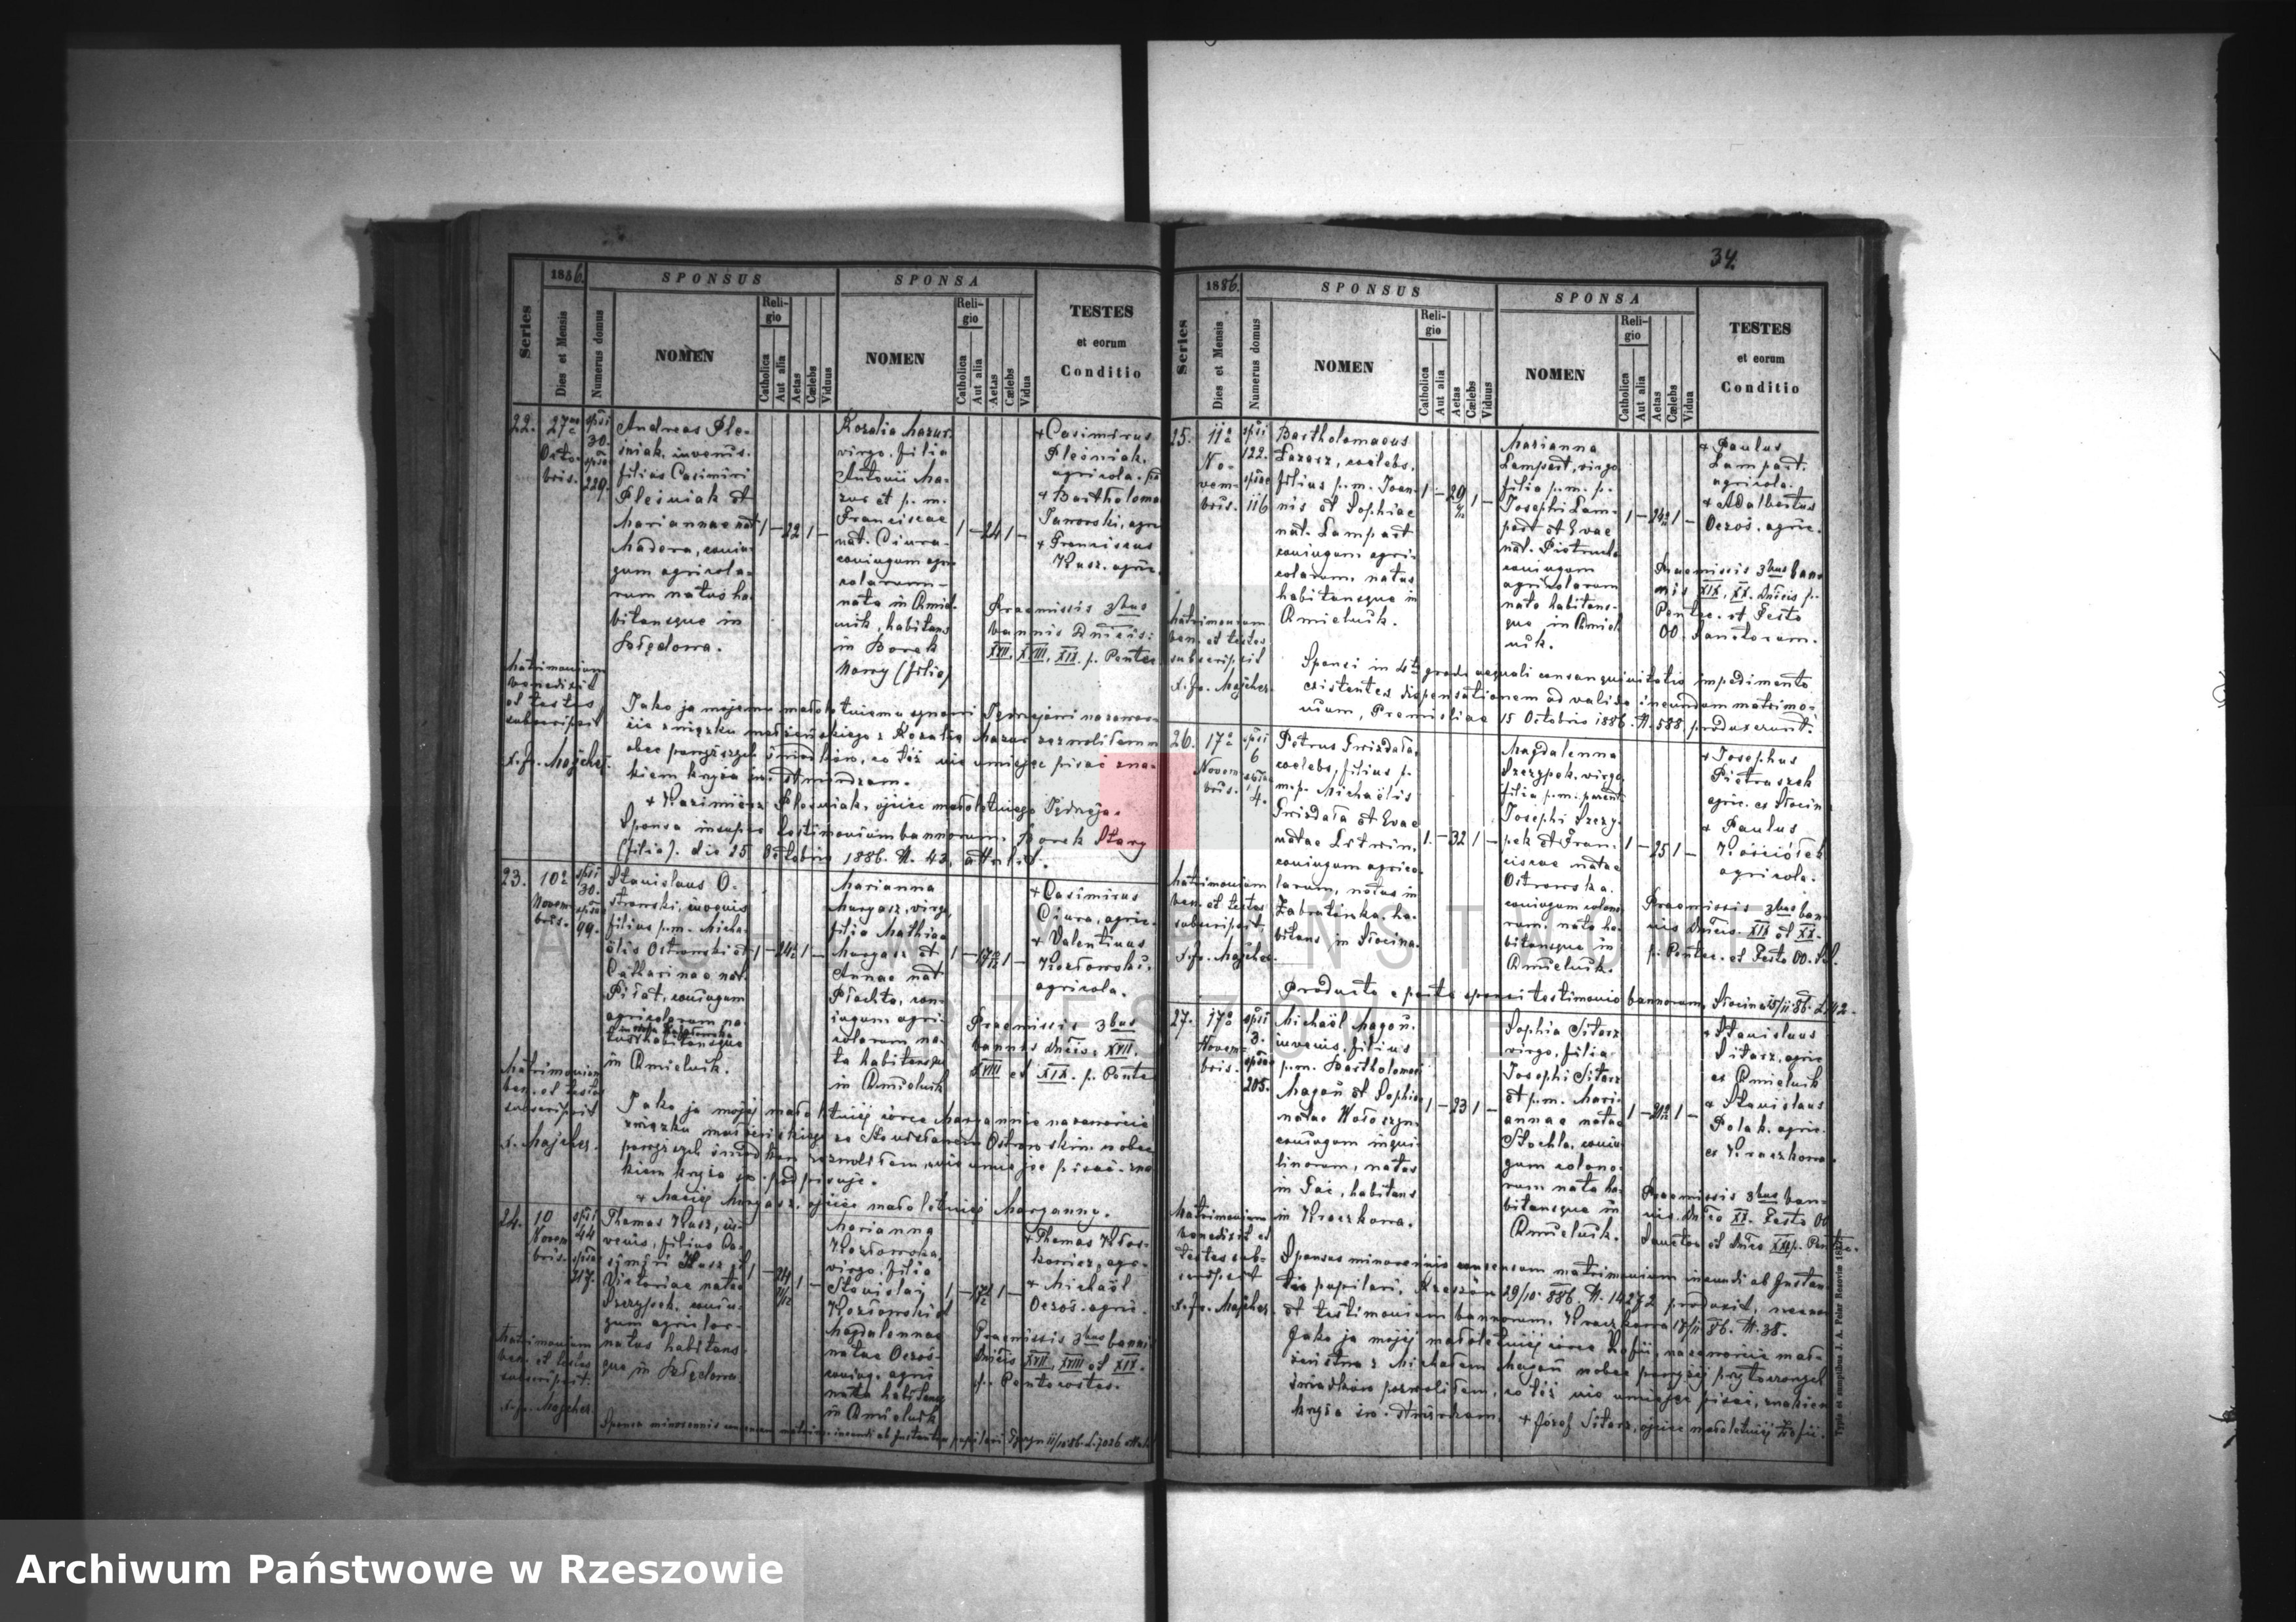 34.
1886.
SPONSUS
SPONSA
TESTES
et eorum
Conditio
Series
Dies et Mensis
Numerus domus
NOMEN
Religio
Catholica
Aut alia
Aetas
Cælebs
Viduus
NOMEN
Religio
Catholica
Aut alia
Aetas
Cælebs
Vidua
22.
27
Octo-
bris.
30.
229.
Andreas Ple-
śniak, iuvenis.
filius Casimiri
Pleśniak et
Mariannae nat
Madera, coniu-
gum agricola-
rum natus ha-
bitansque in
1 – 22 1 –
Rozalia Mazur
virgo, filia
Antonii Ma-
zur et p. m.
Franciscae
nat. Ciura
coniugum agri
colarum
nata in Chmiel
nik, habitans
in Borek
Nowy (filia)
1 – 24 1 –
+ Casimirus
Pleśniak,
agricola.
+ Bartholoma
Jaworski, agr
+ Franciscus
Kusz. agric.
Praemissis 3bus
bannis Dncis:
XVII, XVIII, XIX. p. Pentec
Matrimonium
benedixit
et testes
subscripsit
X. Jz. Majcher.
Jako ja mojemu małoletniemu synowi Jędrzejowi na zawar-
cie związku małżeńskiego z Rozalią Mazur zezwoliłem w
obec powyższych świadków, co też nie umiejąc pisać zna-
kiem krzyża św. stwierdzam.
+ Kazimierz Pleśniak, ojciec małoletniego Jędrzeja.
Sponsa insuper testimonium bannorum, Borek Stary
(filia). die 25 Octobris 1886. N. 43, attulit.
23.
10
Novem
bris.
30.
99.
Stanislaus O-
strowski, iuvenis
filius p. m. Micha-
ëlis Ostrowski et
Catharinae nat.
Piłat, coniugum
agricolarum na-
tus habitansque
in Chmielnik.
1 – 24 1 –
Marianna
Margasz, virgo
filia Mathiae
Margasz et
Annae nat
Płachta, con-
iugum agri-
colarum na-
ta habitansque
in Chmielnik
+ Casimirus
Ciura, agric.
+ Valentinus
Kozłowski,
agricola.
Praemissis 3bus
bannis Dncis, XVII,
XVIII et XIX. p. Pentec
Matrimonium
ben. et testes
subscripsit
X. Majcher.
Jako ja mojej małoletniej córce Maryannie na zawarcie
związku małżeńskiego ze Stanisławem Ostrowskim wobec
powyższych świadków zezwoliłem, nie umiejąc pisać zna
kiem krzyża św. podpisuję.
+ Maciej Margasz, ojciec małoletniej Maryanny.
24.
10
Novem
bris.
44
217.
Thomas Kusz, iu-
venis, filius Ca-
simiri Kusz et
Victoriae natae
Szczypek, coniu-
gum agricolar-
natus habitans-
que in
Marianna
Kozłowska,
virgo, filia
Stanislai
Kozłowski et
Magdalennae
natae Oczoś
coniug. agric
nata habitans
in Chmielnik
+ Thomas
+ Michaël
Oczoś. agric.
Praemissis 3bus banni
Dncis XVII, XVIII et XIX.
p. Pentecostes.
Matrimonium
ben. et testes
subscripsit.
X. Jz. Majcher.
1886.
SPONSUS
SPONSA
TESTES
et eorum
Conditio
Series
Dies et Mensis
Numerus domus
NOMEN
Religio
Catholica
Aut alia
Aetas
Cælebs
Viduus
NOMEN
Religio
Catholica
Aut alia
Aetas
Cælebs
Vidua
25.
11
No-
vem-
bris.
122.
116
Bartholomaeus
coelebs,
filius p. m. Joan-
nis et Sophiae
nat. Lampart
coniugum agri-
colarum, natus
habitansque in
Chmielnik.
Marianna
Lampart, virgo
filia p. m. p.
Josephi Lam-
part et Evae
nat. Pietrucha
coniugum
agricolarum
nata habitans-
que in Chmiel
nik.
+ Paulus
Lampart.
agricola.
+ Adalbertus
Oczoś. agric.
Praemissis 3bus ban
nis XIX, XX. Dncis p.
Pentec. et Festo
OO Sanctorum.
Matrimonium
ben. et testes
subscripsit
X. Jz. Majcher.
Sponsi in 4to gradu aequali consanguinitatis impedimento
existentes dispensationem ad valide ineundum matrimo-
nium, Premisliae 15 Octobris 1886. N. 588. produxerunt.
26.
17
Novem
bris.
6
4.
Petrus Gwizdała,
coelebs, filius p.
m. p. Michaëlis
Gwizdała et Evae
natae Litwin,
coniugum agrico-
larum, natus in
Zabratówka, ha-
bitans in Słocina.
1 – 32 1 –
Magdalenna
Szczypek, virgo
filia p. m. parent
Josephi Szczy-
pek et Fran-
ciscae natae
Ostrowska.
coniugum colono
rum, nata ha-
bitansque in
Chmielnik.
1 – 25 1 –
+ Josephus
Pietraszek
agric. ex Słocin
+ Paulus
Kościółek
agricola.
Praemissis 3bus ban-
nis Dncis. XIX et XX.
p. Pentec. et Festo OO.
Matrimonium
ben. et testes
subscripsit,
X. Jz. Majcher.
Producto e parte sponsi testimonio bannorum, Słocina 15/11 86.
27.
17
Novem-
bris.
3.
205.
Michaël Magoń.
iuvenis, filius
p. m. Bartholomaei
Magoń et Sophiae
natae Wołoszyn
coniugum inqui-
linorum, natus
in Zaie, habitans
in Kraczkowa.
1 – 23 1 –
Sophia Sitarz
virgo, filia
Josephi Sitarz
et p. m. Mari-
annae natae
Stochla, coniu
gum colono-
rum nata ha-
bitansque in
Chmielnik.
+ Stanislaus
Sitarz, agric
ex Chmielnik
+ Stanislaus
Polak. agric.
ex Kraczkowa.
Praemissis 3bus ban-
nis, Dnca XX. Festo OO
Sanctor. et Dnca XXI p. Pentec.
Matrimonium
benedixit et
testes sub-
scripsit
X. Jz. Majcher
Sponsus minorennis consensum matrimonium ineundi ab Instan-
tia pupilari, Rzeszów 29/10 886. N. 14272 produxit, necnon
et testimonium bannorum, Kraczkowa 17/11 86. N. 38.
Jako ja mojej małoletniej córce Zofii, na zawarcie mał-
żeństwa z Michałem Magoń wobec powyżej przytoczonych
świadków pozwoliłem, co też nie umiejąc pisać, znakiem
krzyża św. stwierdzam.
+ Józef Sitarz, ojciec małoletniej Zofii.
ARCHIWUM PAŃSTWOWE
W RZESZOWIE
Archiwum Państwowe w Rzeszowie